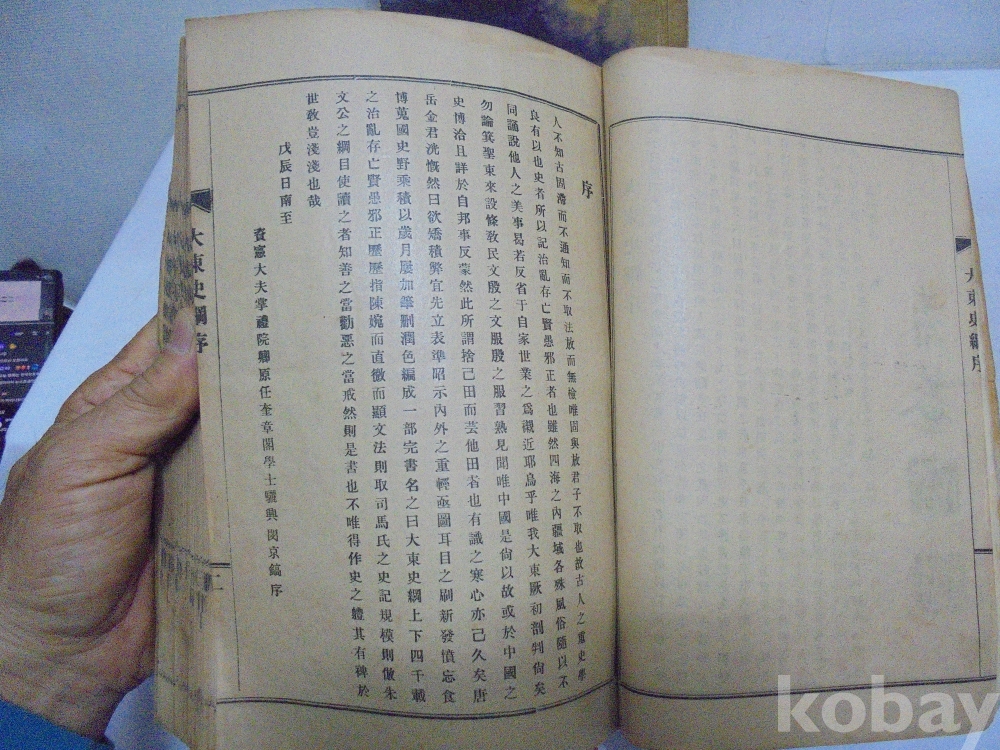 大東史綱序
序
人不知古固滯而不通知而不取法放而無檢唯固與放君子不取也故古人之重史學
良有以也史者所以記治亂存亡賢愚邪正者也雖然四海之內疆域各殊風俗隨以不
同誦說他人之美事曷若反省于自家世業之爲襯近耶烏乎唯我大東厥初剖判尙矣
勿論箕聖東來設條敎民文殷之文服殷之服習熟見聞唯中國是尙以故或於中國之
史博洽且詳於自邦事反蒙然此所謂捨己田而芸他田者也有識之寒心亦己久矣唐
岳金君洸慨然曰欲矯積弊宜先立表準昭示內外之重輕亟圖耳目之刷新發憤忘食
博蒐國史野乘積以歲月屢加筆刪潤色編成一部完書名之曰大東史綱上下四千載
之治亂存亡賢愚邪正歷歷指陳婉而直微而顯文法則取司馬氏之史記規模則倣朱
文公之綱目使讀之者知善之當勸惡之當戒然則是書也不唯得作史之體其有裨於
世敎豈淺淺也哉
戊辰日南至
資憲大夫掌禮院卿原任奎章閣學士驪興閔京鎬序
大東史綱序
二
kobay